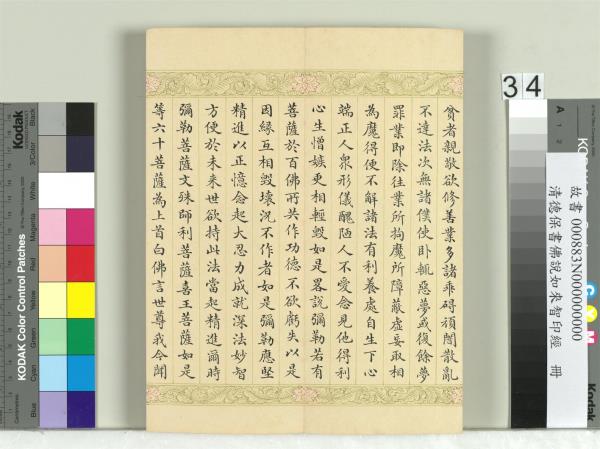 貧者親敬欲修善業多諸乖碍頑闇散亂
不達法次無諸僕使卧輒惡夢或復餘夢
罪業即除往業所拘魔所障蔽虛妄取相
為魔得便不解諸法有利養處自生下心
端正人衆形儀醜陋人不愛念見他得利
心生憎嫉更相輕毀如是畧說彌勒若有
菩薩於百佛所共作功德不欲虧失以是
因緣互相毀壞況不作者如是彌勒應堅
精進以正憶念起大忍力成就深法妙智
方便於未來世欲持此法當起精進爾時
彌勒菩薩文殊師利菩薩喜王菩薩如是
等六十菩薩為上首白佛言世尊我今聞
34
故書 000883N000000000
清德保書佛說如來智印經 冊
Kodak
KODAK Color Control Patches
Black
3/Color
White
Magenta
Red
Yellow
Green
Cyan
Blue
A
1
2
C
Y
M